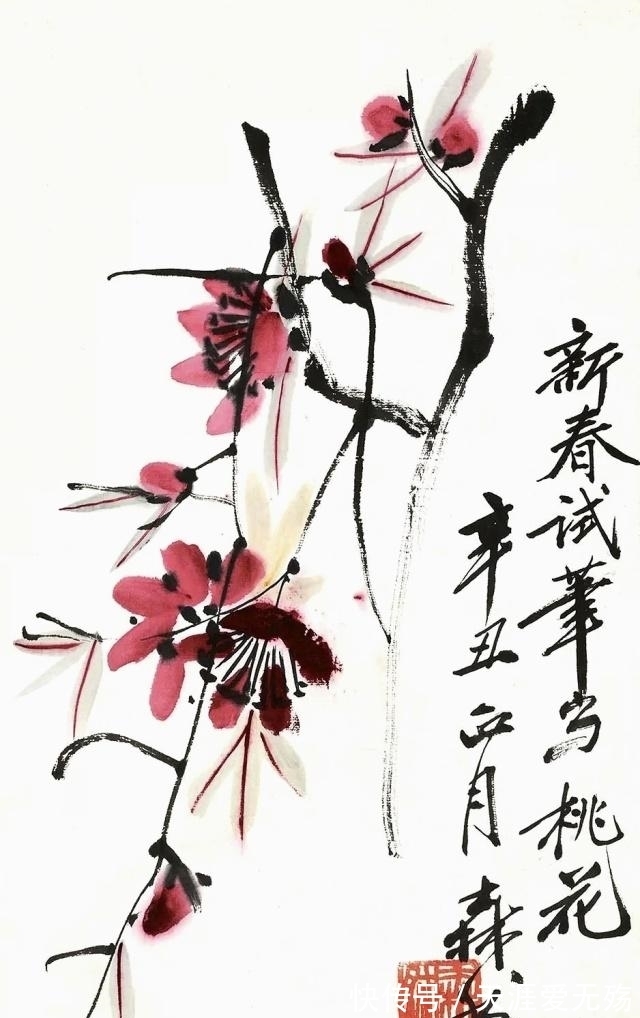 新春试筆写桃花
辛丑正月 森
快传号/天涯爱无殇